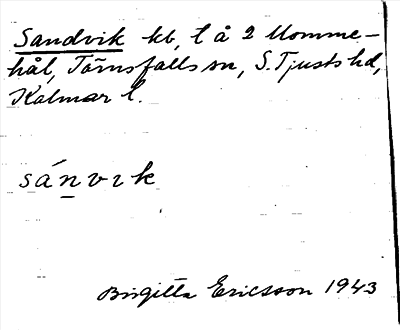 Sandvik kb, l å 2 Momme-
hål, Törnsfalls sn, S. Tjusts hd,
Kalmar l.
sánvik
Birgitta Ericsson 1943